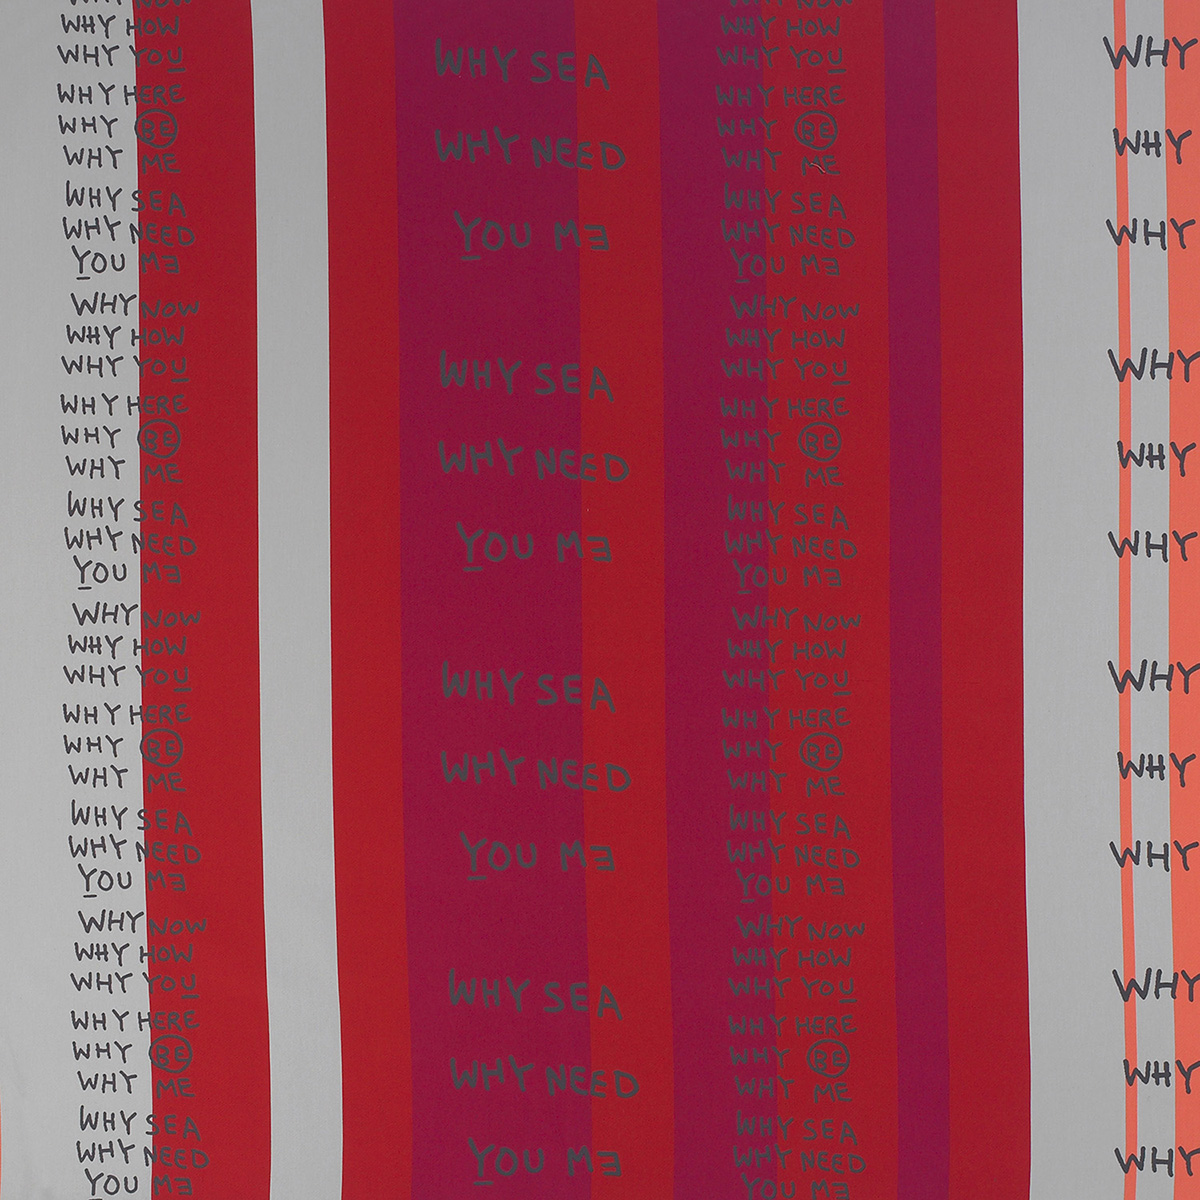 WHY NOW
WHY HOW
WHY YOU
WHY HERE
WHY BE
WHY ME
WHY SEA
WHY NEED
YOU MƎ
WHY NOW
WHY HOW
WHY YOU
WHY HERE
WHY BE
WHY ME
WHY SEA
WHY NEED
YOU MƎ
WHY NOW
WHY HOW
WHY YOU
WHY HERE
WHY BE
WHY ME
WHY SEA
WHY NEED
YOU MƎ
WHY NOW
WHY HOW
WHY YOU
WHY HERE
WHY BE
WHY ME
WHY SEA
WHY NEED
YOU MƎ
WHY SEA
WHY NEED
YOU MƎ
WHY SEA
WHY NEED
YOU MƎ
WHY SEA
WHY NEED
YOU MƎ
WHY SEA
WHY NEED
YOU MƎ
WHY NOW
WHY HOW
WHY YOU
WHY HERE
WHY BE
WHY ME
WHY SEA
WHY NEED
YOU MƎ
WHY NOW
WHY HOW
WHY YOU
WHY HERE
WHY BE
WHY ME
WHY SEA
WHY NEED
YOU MƎ
WHY NOW
WHY HOW
WHY YOU
WHY HERE
WHY BE
WHY ME
WHY SEA
WHY NEED
YOU MƎ
WHY NOW
WHY HOW
WHY YOU
WHY HERE
WHY BE
WHY ME
WHY SEA
WHY NEED
YOU MƎ
WHY
WHY
WHY
WHY
WHY
WHY
WHY
WHY
WHY
WHY
WHY
WHY